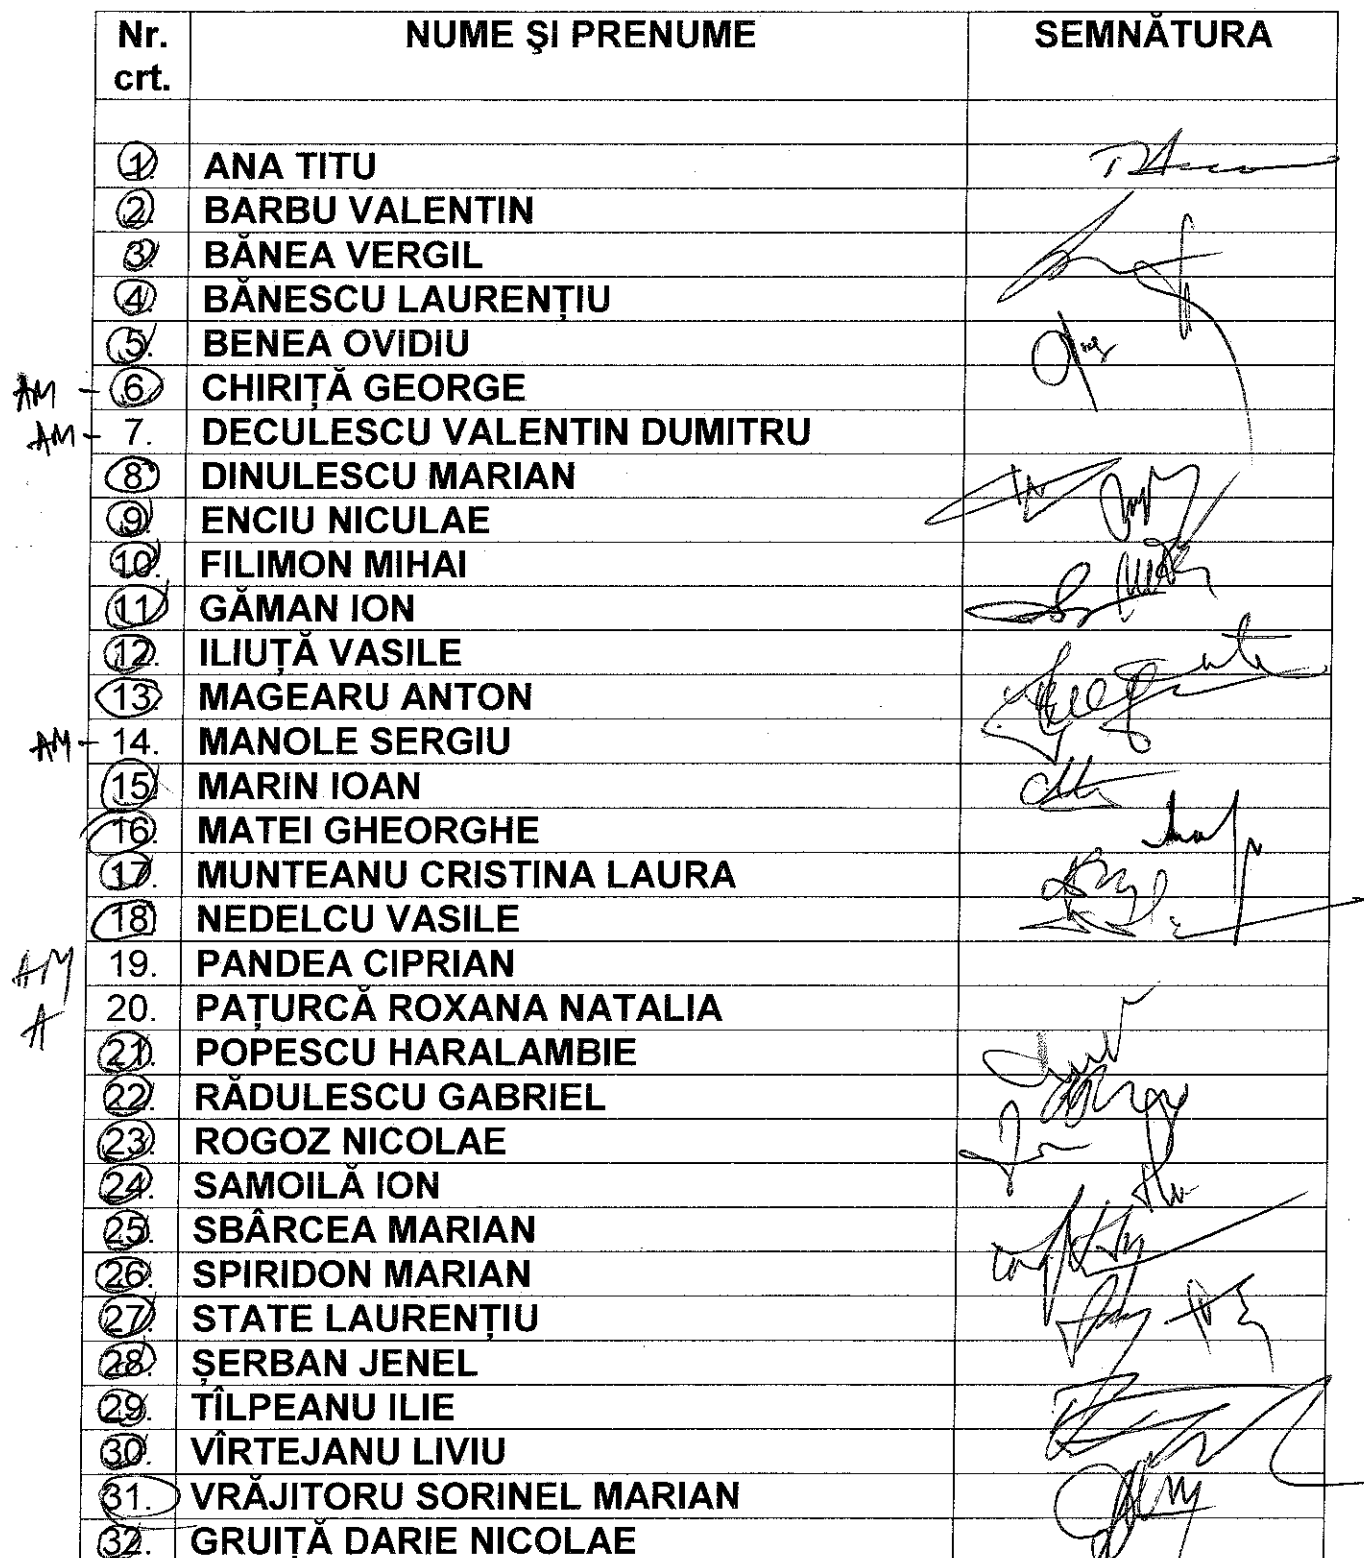 Nr. crt. NUME ŞI PRENUME SEMNĂTURA
1. ANA TITU
2. BARBU VALENTIN
3. BĂNEA VERGIL
4. BĂNESCU LAURENȚIU
5. BENEA OVIDIU
AM - 6. CHIRIȚĂ GEORGE
AM - 7. DECULESCU VALENTIN DUMITRU
8. DINULESCU MARIAN
9. ENCIU NICULAE
10. FILIMON MIHAI
11. GĂMAN ION
12. ILIUȚĂ VASILE
13. MAGEARU ANTON
AM - 14. MANOLE SERGIU
15. MARIN IOAN
16. MATEI GHEORGHE
17. MUNTEANU CRISTINA LAURA
18. NEDELCU VASILE
AM 19. PANDEA CIPRIAN
A 20. PAȚURCĂ ROXANA NATALIA
21. POPESCU HARALAMBIE
22. RĂDULESCU GABRIEL
23. ROGOZ NICOLAE
24. SAMOILĂ ION
25. SBÂRCEA MARIAN
26. SPIRIDON MARIAN
27. STATE LAURENȚIU
28. ȘERBAN JENEL
29. TÎLPEANU ILIE
30. VÎRTEJANU LIVIU
31. VRĂJITORU SORINEL MARIAN
32. GRUIȚĂ DARIE NICOLAE